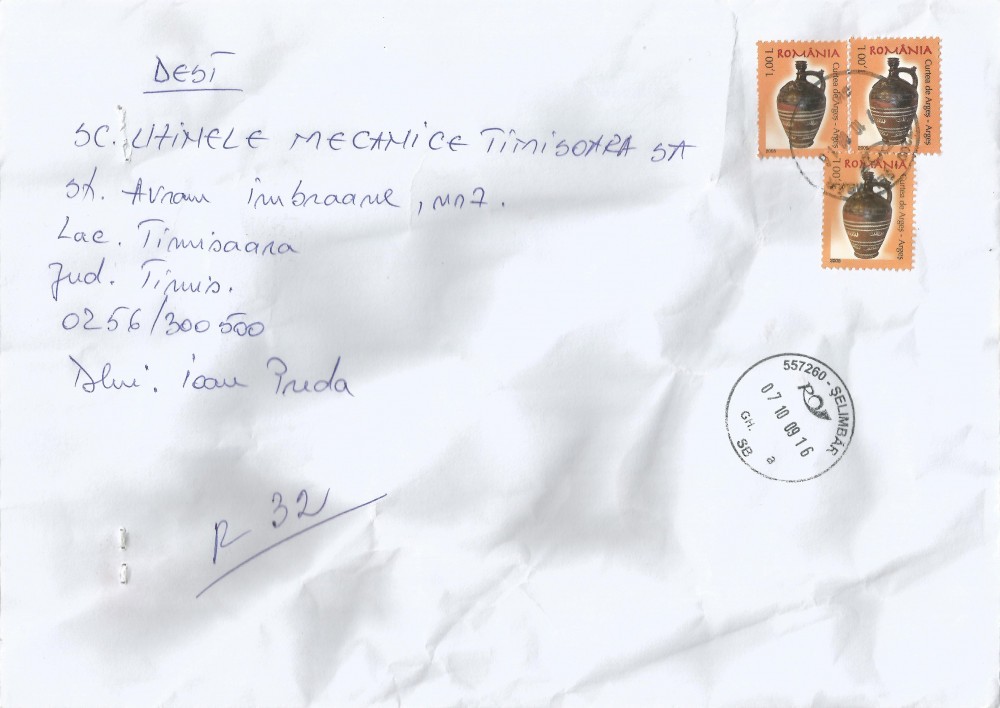 DEST
SC. UZINELE MECANICE TIMISOARA SA
Str. Avram Imbroane, nr 7.
Loc. Timisoara
Jud. Timis.
0256/300500
Dlui. Ioan Preda
R 32
1.00 L ROMÂNIA
Curtea de Argeş - Argeş
2005
1.00 L ROMÂNIA
Curtea de Argeş - Argeş
2005
1.00 L ROMÂNIA
Curtea de Argeş - Argeş
2005
557260 - ŞELIMBĂR
07 10 09 16
GH.
SB a